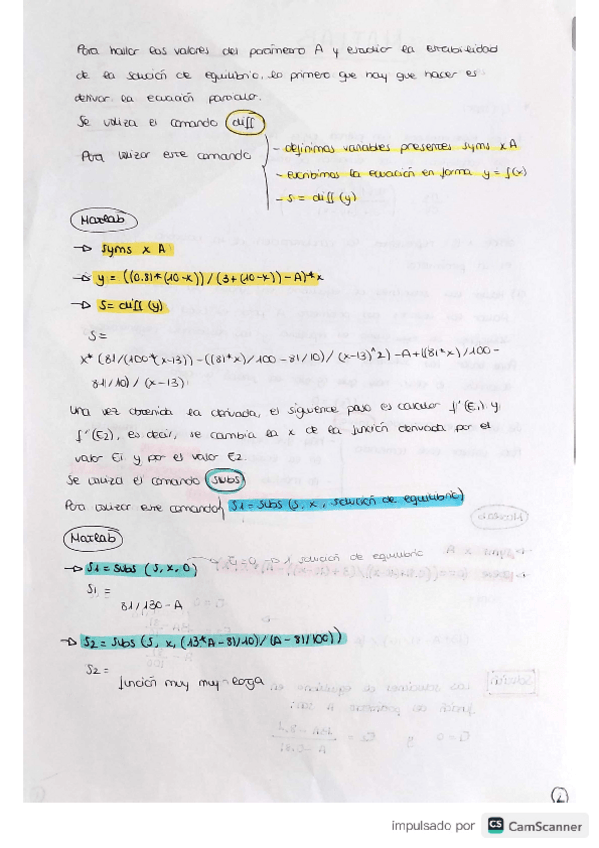 Para hallar los valores del parámetro A y estudiar la estabilidad
de la solución de equilibrio, lo primero que hay que hacer es
derivar la ecuación paralulo.
Se utiliza el comando diff
Para utilizar este comando
- definimos variables presentes syms x A
- escribimos la ecuación en forma y = f(x)
- s = diff (y)
Matlab
→ syms x A
→ y = ((0.81*(10-x))/(3+(10-x))-A)*x
→ s = diff (y)
s=
x*(81/(100*(x-13))-((81*x)/100-81/10)/(x-13)^2)-A+((81*x)/100-
81/10)/(x-13)
Una vez obtenida la derivada, el siguiente paso es calcular f'(E1) y
f'(E2), es decir, se cambia la x de la función derivada por el
valor E1 y por el valor E2.
Se utiliza el comando subs
Para utilizar este comando s1=subs (s, x, solución de equilibrio)
Matlab
→ s1 = subs (s, x, 0) → 1 solución de equilibrio
s1 =
81/130-A
→ s2 = subs (s, x, (13*A-81/10)/(A-81/100))
s2 =
función muy muy larga
2
impulsado por CS CamScanner